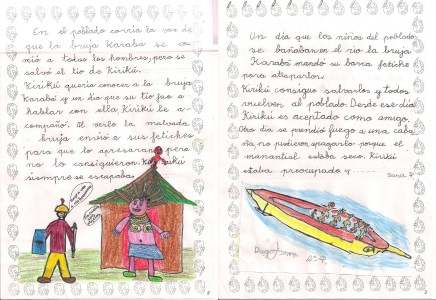 En el poblado corría la voz de
que la bruja Karabá se co-
mió a todos los hombres, pero se
salvó el tío de Kirikú.
Kirikú quería conocer a la bruja
Karabá y un día que su tío fue a
hablar con ella Kirikú le a-
compañó. Al verlo la malvada
bruja envió a sus fetiches
para que lo apresaran, pero
no lo consiguieron. Kirikú
siempre se escapaba.
Un día que los niños del poblado
se bañaban en el río la bruja
Karabá mandó su barca fetiche
para atraparlos.
Kirikú consigue salvarlos y todos
vuelven al poblado. Desde ese día
Kirikú es aceptado como amigo.
Otro día se prendió fuego a una caba
ña, no pudieron apagarlo porque el
manantial estaba seco. Kirikú
estaba preocupado y .....